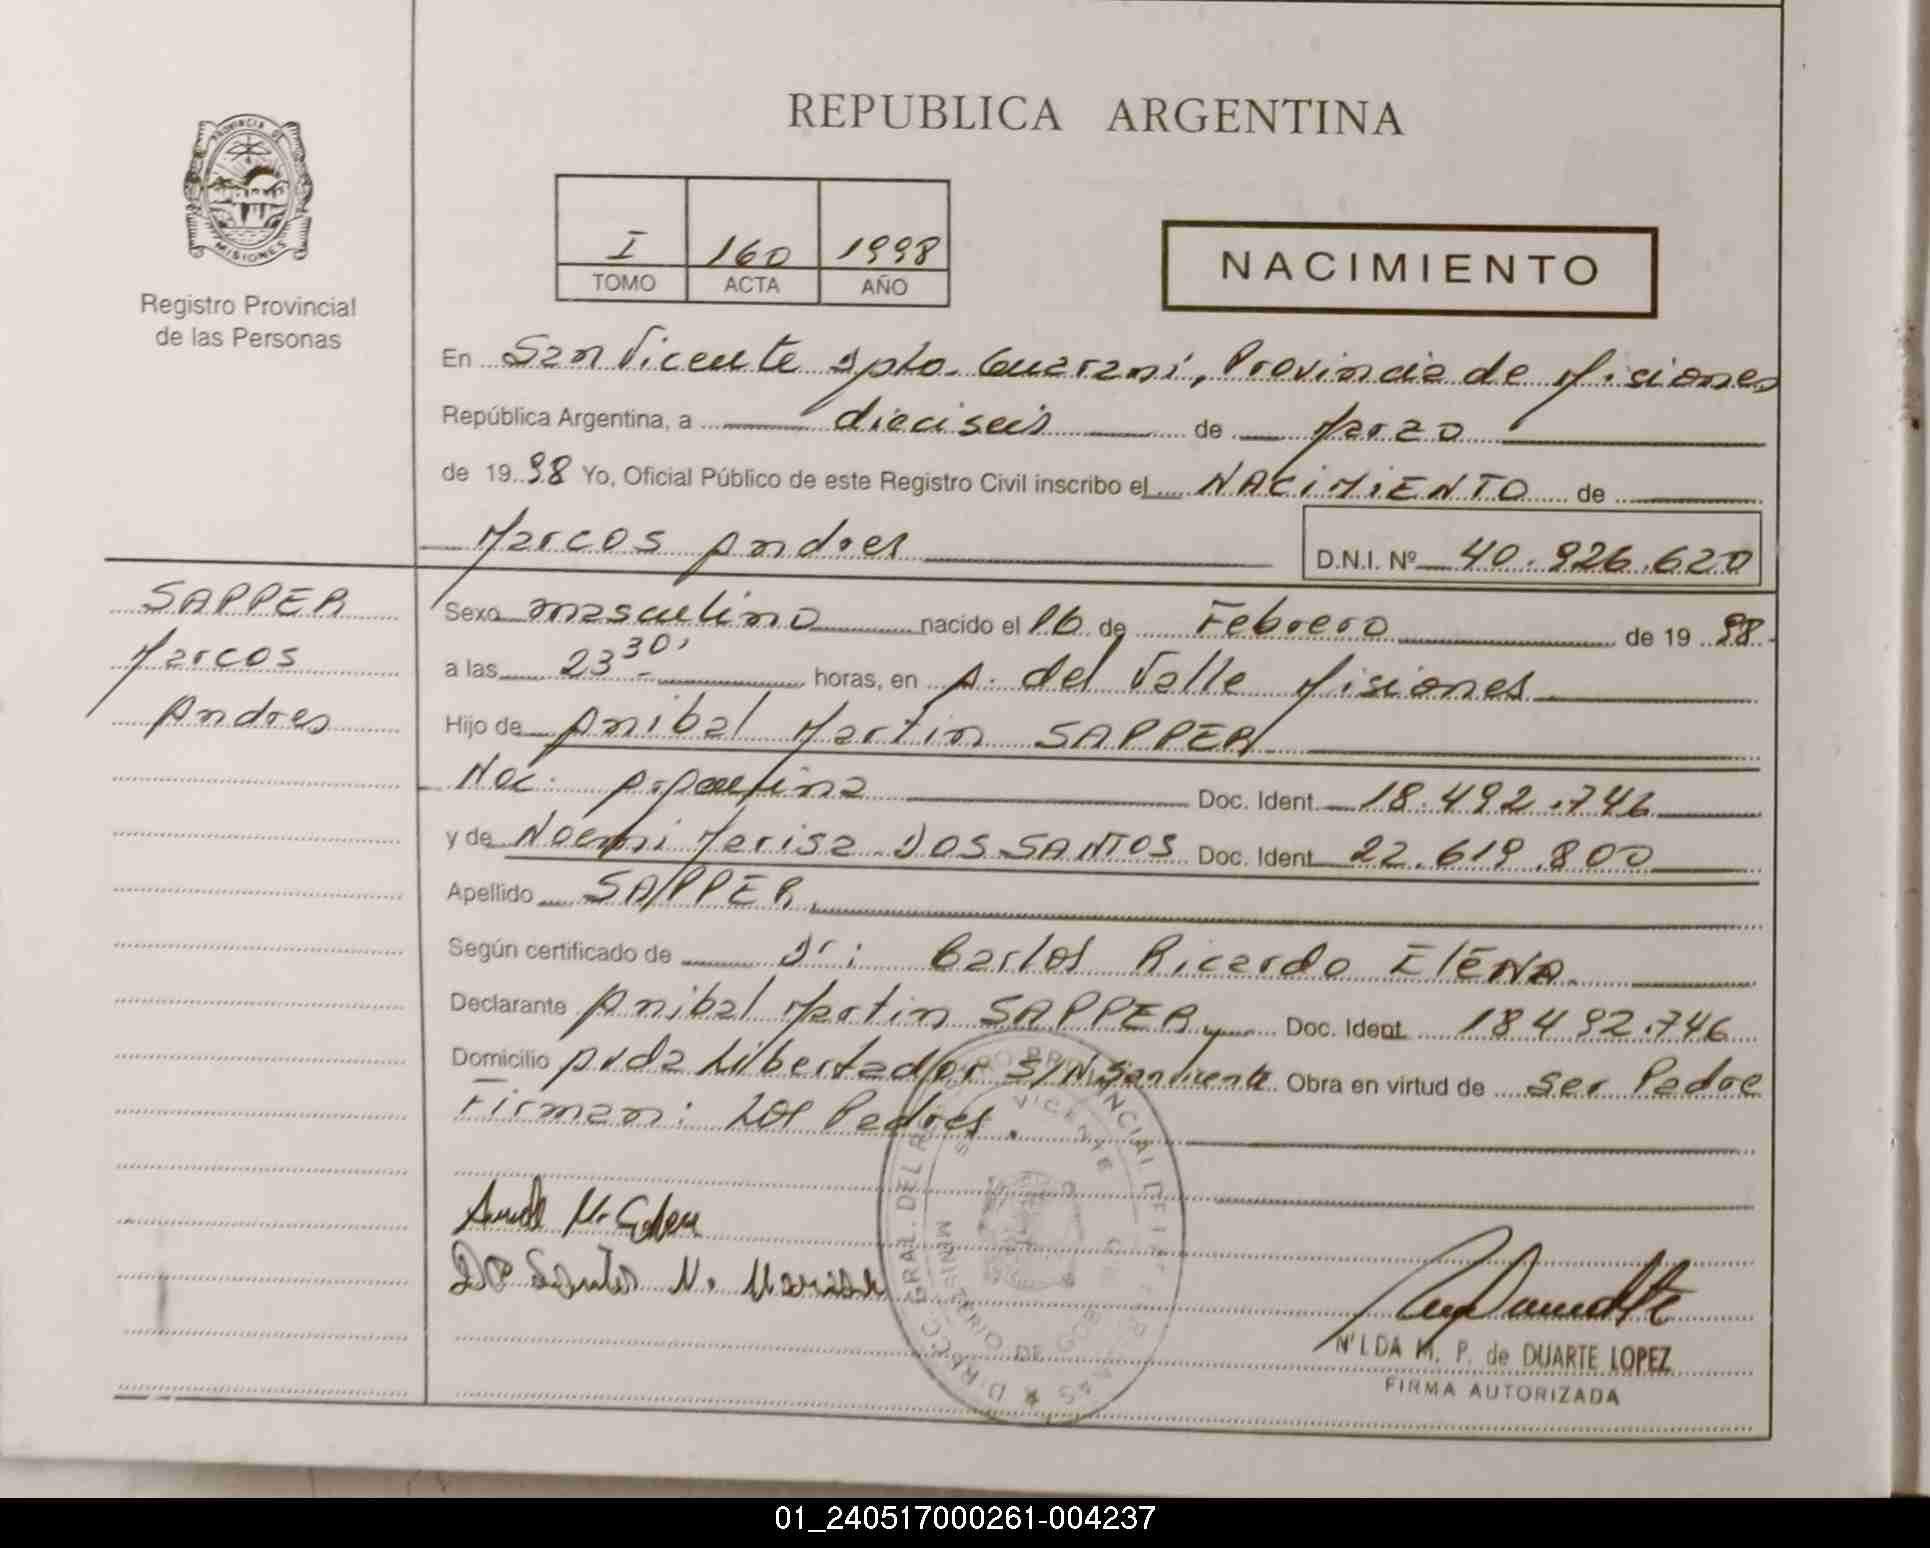 REPUBLICA ARGENTINA
PROVINCIA DE
MISIONES
Registro Provincial
de las Personas
I 160 1998
TOMO ACTA AÑO
NACIMIENTO
En San Vicente Dpto. Guarani, Provincia de Misiones
República Argentina, a dieciseis de Marzo
de 1998 Yo, Oficial Público de este Registro Civil inscribo el NACIMIENTO de
Marcos Andres D.N.I. Nº 40.926.620
SAPPER
Marcos
Andres
Sexo masculino nacido el 16 de Febrero de 1998.
a las 23 30' horas, en A. del Valle Misiones
Hijo de Anibal Martin SAPPER
Nac. Argentina Doc. Ident. 18.492.746
y de Noemi Marisa DOS SANTOS Doc. Ident. 22.619.800
Apellido SAPPER
Según certificado de Dr: Carlos Ricardo ELENA.
Declarante Anibal Martin SAPPER Doc. Ident. 18492.746
Domicilio Avda Libertador S/N San Vicente. Obra en virtud de ser Padre
Firman: Los Padres.
Dos Santos N. Marisa
N'LDA M. P. de DUARTE LOPEZ
FIRMA AUTORIZADA
01_240517000261-004237